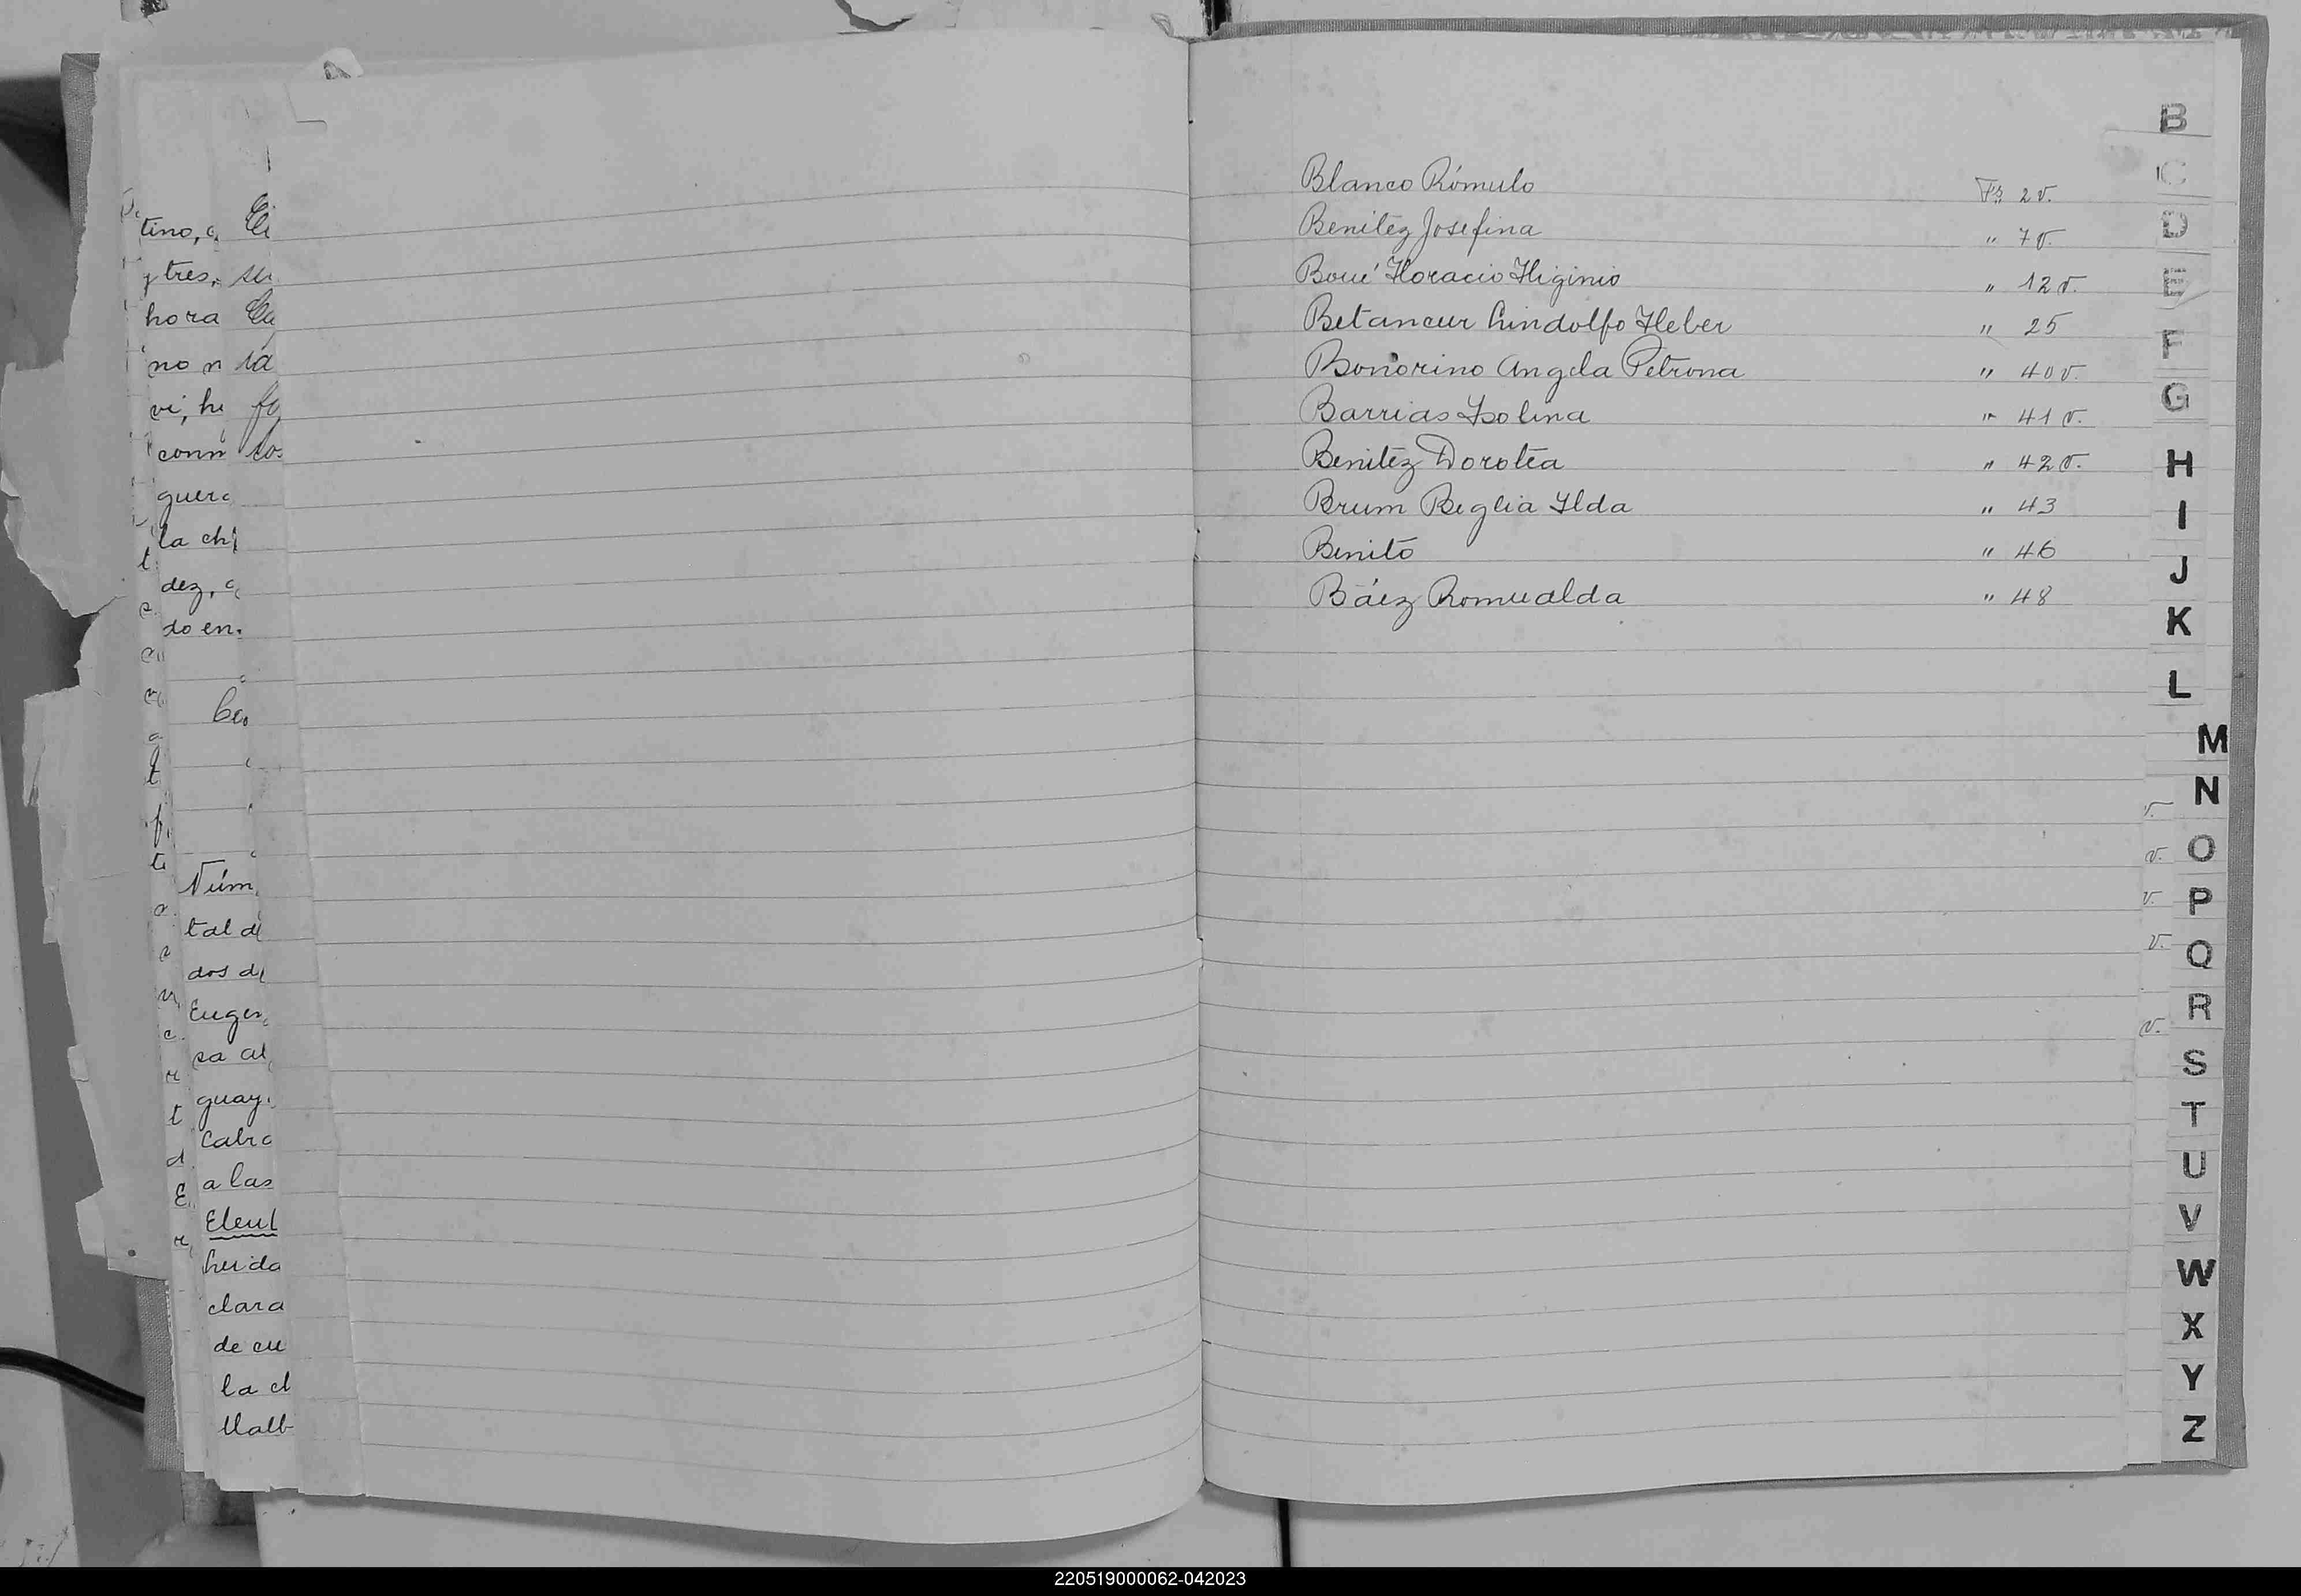 Blanco Rómulo Fs 2v.
Benítez Josefina " 7v.
Boué Horacio Higinio " 12v.
Betancur Lindolfo Heber " 25
Bonorino Angela Petrona " 40v.
Barrias Isolina " 41v.
Benítez Dorotea " 42v.
Brum Beglia Ilda " 43
Benito " 46
Báez Romualda " 48
B
C
D
E
F
G
H
I
J
K
L
M
N
O
P
Q
R
S
T
U
V
W
X
Y
Z
v.
v.
v.
v.
v.
tino,
y tres,
hora
no n
vi, hi
conn
guera
la ch
dez,
do en
Núm
tal d
dos d
Eugen
sa al
guay
Cabr
a las
Eleut
herida
clara
de cu
la d
220519000062-042023